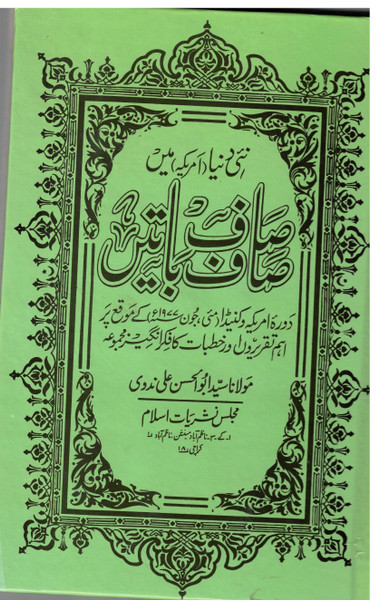 نئی دنیا (امریکہ) میں
صاف صاف باتیں
دورۂ امریکہ و کنیڈا (مئی، جون ۱۹۷۷ء) کے موقع پر
اہم تقریروں اور خطبات کا فکر انگیز مجموعہ
مولانا سید ابوالحسن علی ندوی
مجلس نشریات اسلام
۱۔کے۔۳۔ ناظم آباد مینشن۔ ناظم آباد ۱
کراچی